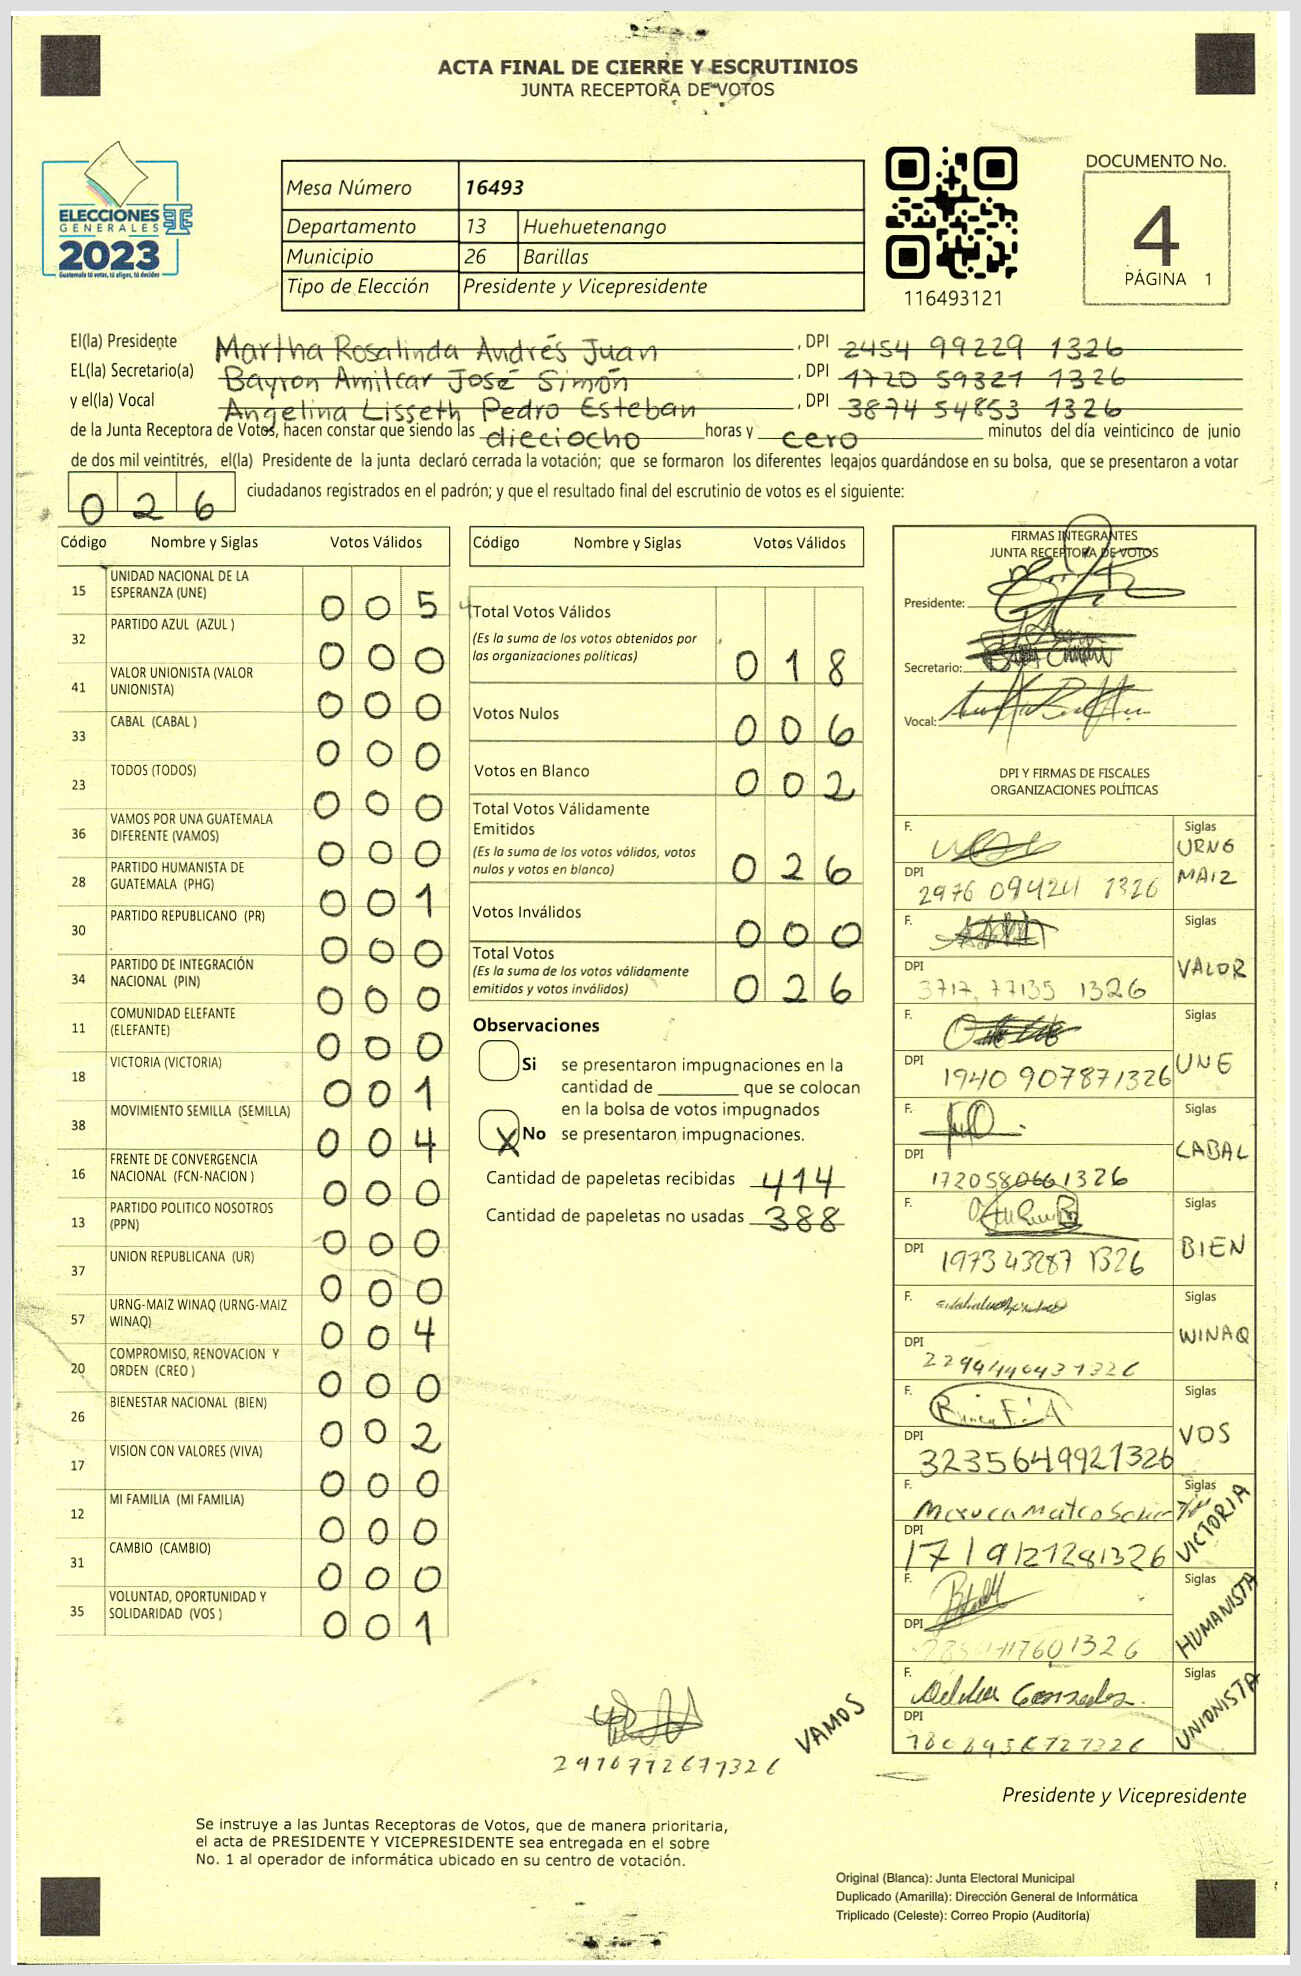 ACTA FINAL DE CIERRE Y ESCRUTINIOS
JUNTA RECEPTORA DE VOTOS
ELECCIONES
GENERALES
2023
Guatemala tú votas, tú eliges, tú decides
Mesa Número 16493
Departamento 13 Huehuetenango
Municipio 26 Barillas
Tipo de Elección Presidente y Vicepresidente
116493121
DOCUMENTO No.
4
PÁGINA 1
El(la) Presidente Martha Rosalinda Andrés Juan , DPI 2454 99229 1326
EL(la) Secretario(a) Bayron Amilcar José Simón , DPI 1720 59321 1326
y el(la) Vocal Angelina Lisseth Pedro Esteban , DPI 3874 54853 1326
de la Junta Receptora de Votos, hacen constar que siendo las dieciocho horas y cero minutos del día veinticinco de junio
de dos mil veintitrés, el(la) Presidente de la junta declaró cerrada la votación; que se formaron los diferentes legajos guardándose en su bolsa, que se presentaron a votar
0 2 6 ciudadanos registrados en el padrón; y que el resultado final del escrutinio de votos es el siguiente:
Código Nombre y Siglas Votos Válidos
15 UNIDAD NACIONAL DE LA ESPERANZA (UNE) 0 0 5
32 PARTIDO AZUL (AZUL ) 0 0 0
41 VALOR UNIONISTA (VALOR UNIONISTA) 0 0 0
33 CABAL (CABAL ) 0 0 0
23 TODOS (TODOS) 0 0 0
36 VAMOS POR UNA GUATEMALA DIFERENTE (VAMOS) 0 0 0
28 PARTIDO HUMANISTA DE GUATEMALA (PHG) 0 0 1
30 PARTIDO REPUBLICANO (PR) 0 0 0
34 PARTIDO DE INTEGRACIÓN NACIONAL (PIN) 0 0 0
11 COMUNIDAD ELEFANTE (ELEFANTE) 0 0 0
18 VICTORIA (VICTORIA) 0 0 1
38 MOVIMIENTO SEMILLA (SEMILLA) 0 0 4
16 FRENTE DE CONVERGENCIA NACIONAL (FCN-NACION ) 0 0 0
13 PARTIDO POLITICO NOSOTROS (PPN) 0 0 0
37 UNION REPUBLICANA (UR) 0 0 0
57 URNG-MAIZ WINAQ (URNG-MAIZ WINAQ) 0 0 4
20 COMPROMISO, RENOVACION Y ORDEN (CREO ) 0 0 0
26 BIENESTAR NACIONAL (BIEN) 0 0 2
17 VISION CON VALORES (VIVA) 0 0 0
12 MI FAMILIA (MI FAMILIA) 0 0 0
31 CAMBIO (CAMBIO) 0 0 0
35 VOLUNTAD, OPORTUNIDAD Y SOLIDARIDAD (VOS ) 0 0 1
Código Nombre y Siglas Votos Válidos
Total Votos Válidos
(Es la suma de los votos obtenidos por
las organizaciones políticas) 0 1 8
Votos Nulos 0 0 6
Votos en Blanco 0 0 2
Total Votos Válidamente
Emitidos
(Es la suma de los votos válidos, votos
nulos y votos en blanco) 0 2 6
Votos Inválidos 0 0 0
Total Votos
(Es la suma de los votos válidamente
emitidos y votos inválidos) 0 2 6
Observaciones
Si se presentaron impugnaciones en la
cantidad de que se colocan
en la bolsa de votos impugnados
X No se presentaron impugnaciones.
Cantidad de papeletas recibidas 414
Cantidad de papeletas no usadas 388
FIRMAS INTEGRANTES
JUNTA RECEPTORA DE VOTOS
Presidente:
Secretario:
Vocal:
DPI Y FIRMAS DE FISCALES
ORGANIZACIONES POLÍTICAS
F. Siglas URNG MAIZ
DPI 2976 09424 1326
F. Siglas VALOR
DPI 3717 77135 1326
F. Siglas UNE
DPI 1940 907871326
F. Siglas CABAL
DPI 1720580661326
F. Siglas BIEN
DPI 1973 43287 1326
F. Siglas WINAQ
DPI
F. Siglas VOS
DPI 3235649921326
F. Siglas VICTORIA
DPI 1719121281326
F. Siglas HUMANISTA
DPI
F. Siglas UNIONISTA
DPI
VAMOS
2976772677326
Presidente y Vicepresidente
Se instruye a las Juntas Receptoras de Votos, que de manera prioritaria,
el acta de PRESIDENTE Y VICEPRESIDENTE sea entregada en el sobre
No. 1 al operador de informática ubicado en su centro de votación.
Original (Blanca): Junta Electoral Municipal
Duplicado (Amarilla): Dirección General de Informática
Triplicado (Celeste): Correo Propio (Auditoría)